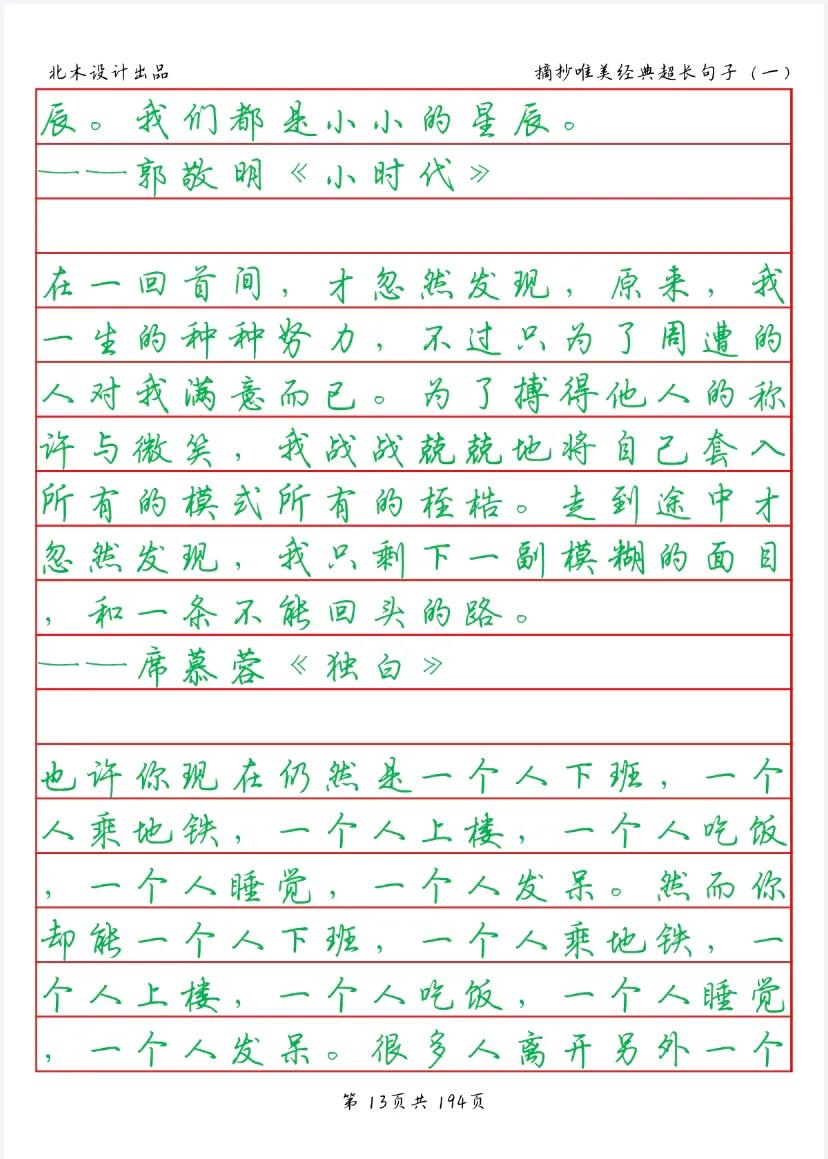 北木设计出品
摘抄唯美经典超长句子（一）
辰。我们都是小小的星辰。
——郭敬明《小时代》
在一回首间，才忽然发现，原来，我
一生的种种努力，不过只为了周遭的
人对我满意而已。为了搏得他人的称
许与微笑，我战战兢兢地将自己套入
所有的模式所有的桎梏。走到途中才
忽然发现，我只剩下一副模糊的面目
，和一条不能回头的路。
——席慕蓉《独白》
也许你现在仍然是一个人下班，一个
人乘地铁，一个人上楼，一个人吃饭
，一个人睡觉，一个人发呆。然而你
却能一个人下班，一个人乘地铁，一
个人上楼，一个人吃饭，一个人睡觉
，一个人发呆。很多人离开另外一个
第 13页共 194页